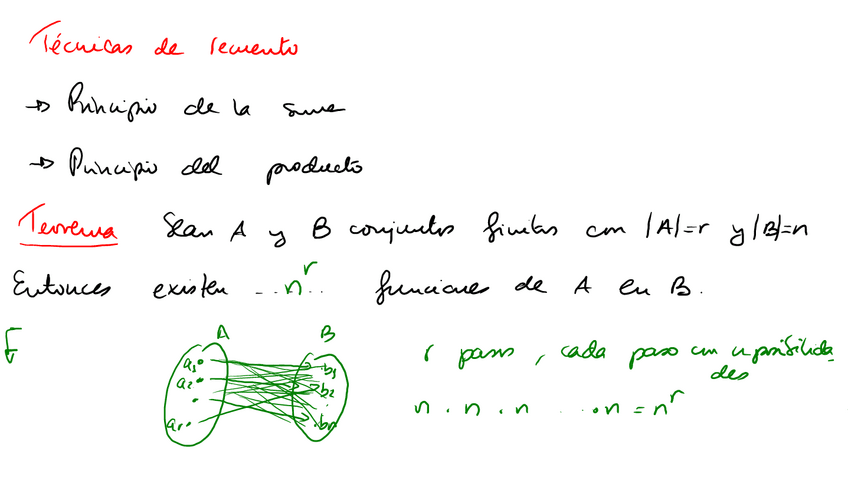 Técnicas de recuento
→ Principio de la suma
→ Principio del producto
Teorema Sean A y B conjuntos finitos con |A|=r y |B|=n
Entonces existen ..n^r.. funciones de A en B.
A B
a1 b1
a2 b2
ar bn
r pasos, cada paso con n posibilida-
des
n . n . n ... . n = n^r